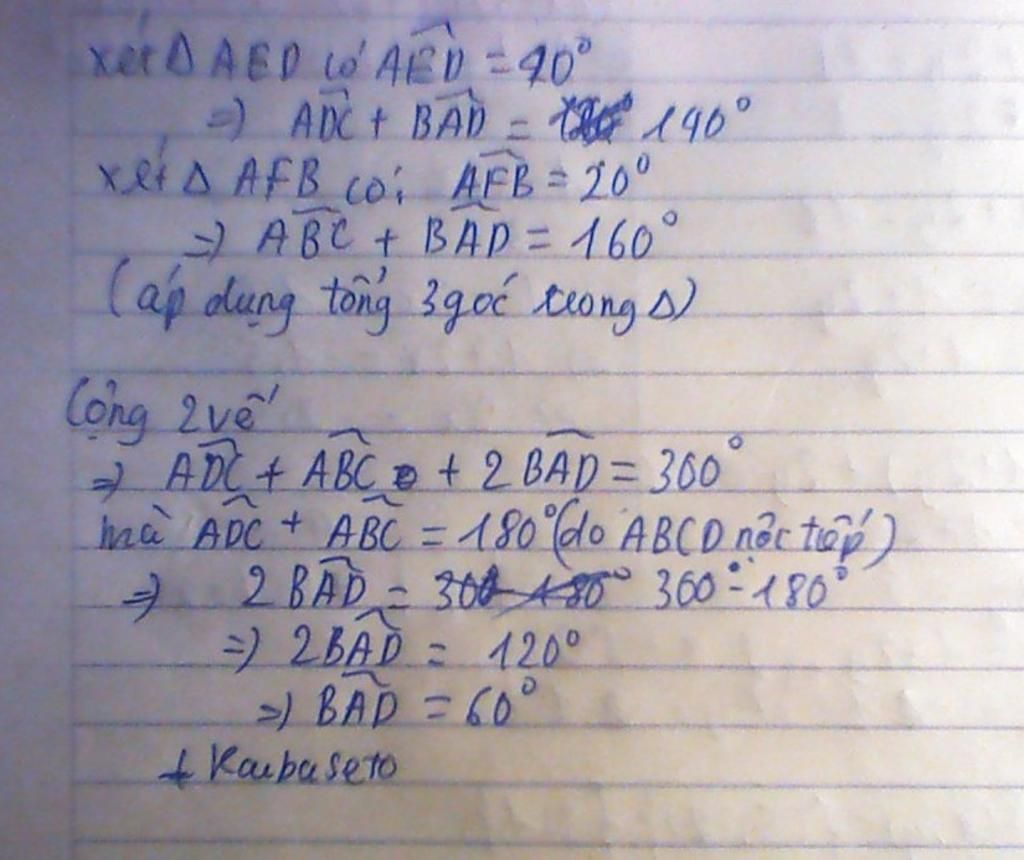 xét Δ AED có AED = 40°
=> ADC + BAD = 140°
xét Δ AFB có: AFB = 20°
=> ABC + BAD = 160°
(áp dụng tổng 3 góc trong Δ)
Cộng 2 vế
=> ADC + ABC + 2 BAD = 300°
mà ADC + ABC = 180° (do ABCD nộc tiếp)
=> 2 BAD = 300° - 180°
=> 2BAD = 120°
=> BAD = 60°